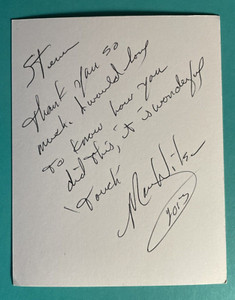 Steve
thank you so
much. I would love
to know how you
did this, it is wonderful
Touch
Wilson
2013